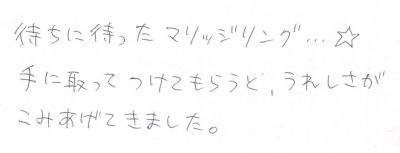 待ちに待ったマリッジリング…☆
手に取ってつけてもらうと、うれしさが
こみあげてきました。